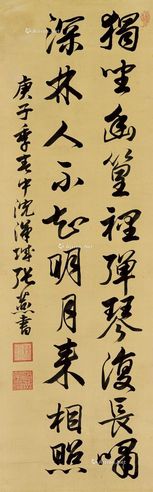 獨坐幽篁裡彈琴復長嘯
深林人不知明月来相照
庚子季春中浣
張燕書